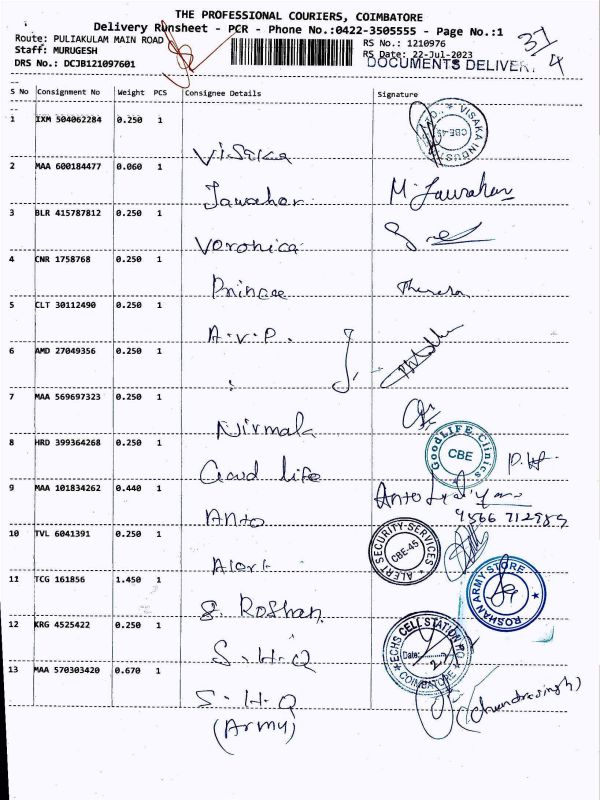 THE PROFESSIONAL COURIERS, COIMBATORE
Delivery Runsheet - PCR - Phone No.:0422-3505555 - Page No.:1
Route: PULIAKULAM MAIN ROAD
Staff: MURUGESH
DRS No.: DCJB121097601
RS No.: 1210976
RS Date: 22-Jul-2023
DOCUMENTS DELIVER
S No Consignment No Weight PCS Consignee Details Signature
1 IXM 504062284 0.250 1
VISAKA INDUST
CBE-45
Visaka
2 MAA 600184477 0.060 1
Jawahar M. Jawahar
3 BLR 415787812 0.250 1
Voronica
4 CNR 1758768 0.250 1
Prince Theresa
5 CLT 30112490 0.250 1
A.V.P.
6 AMD 27049356 0.250 1
7 MAA 569697323 0.250 1
Nirmala
8 HRD 399364268 0.250 1
GoodLIFE Clinics
CBE
Good life
9 MAA 101834262 0.440 1
Anto
9566 712989
10 TVL 6041391 0.250 1
ALERT SECURITY SERVICES
CBE-45
Alert
11 TCG 161856 1.450 1
ROSHAN ARMY STORE
S. Roshan
12 KRG 4525422 0.250 1
ECHS CELL STATION HQ
Date:
COIMBATORE
S.H.Q
13 MAA 570303420 0.670 1
S.H.Q
(Army)
(Chandrasingh)